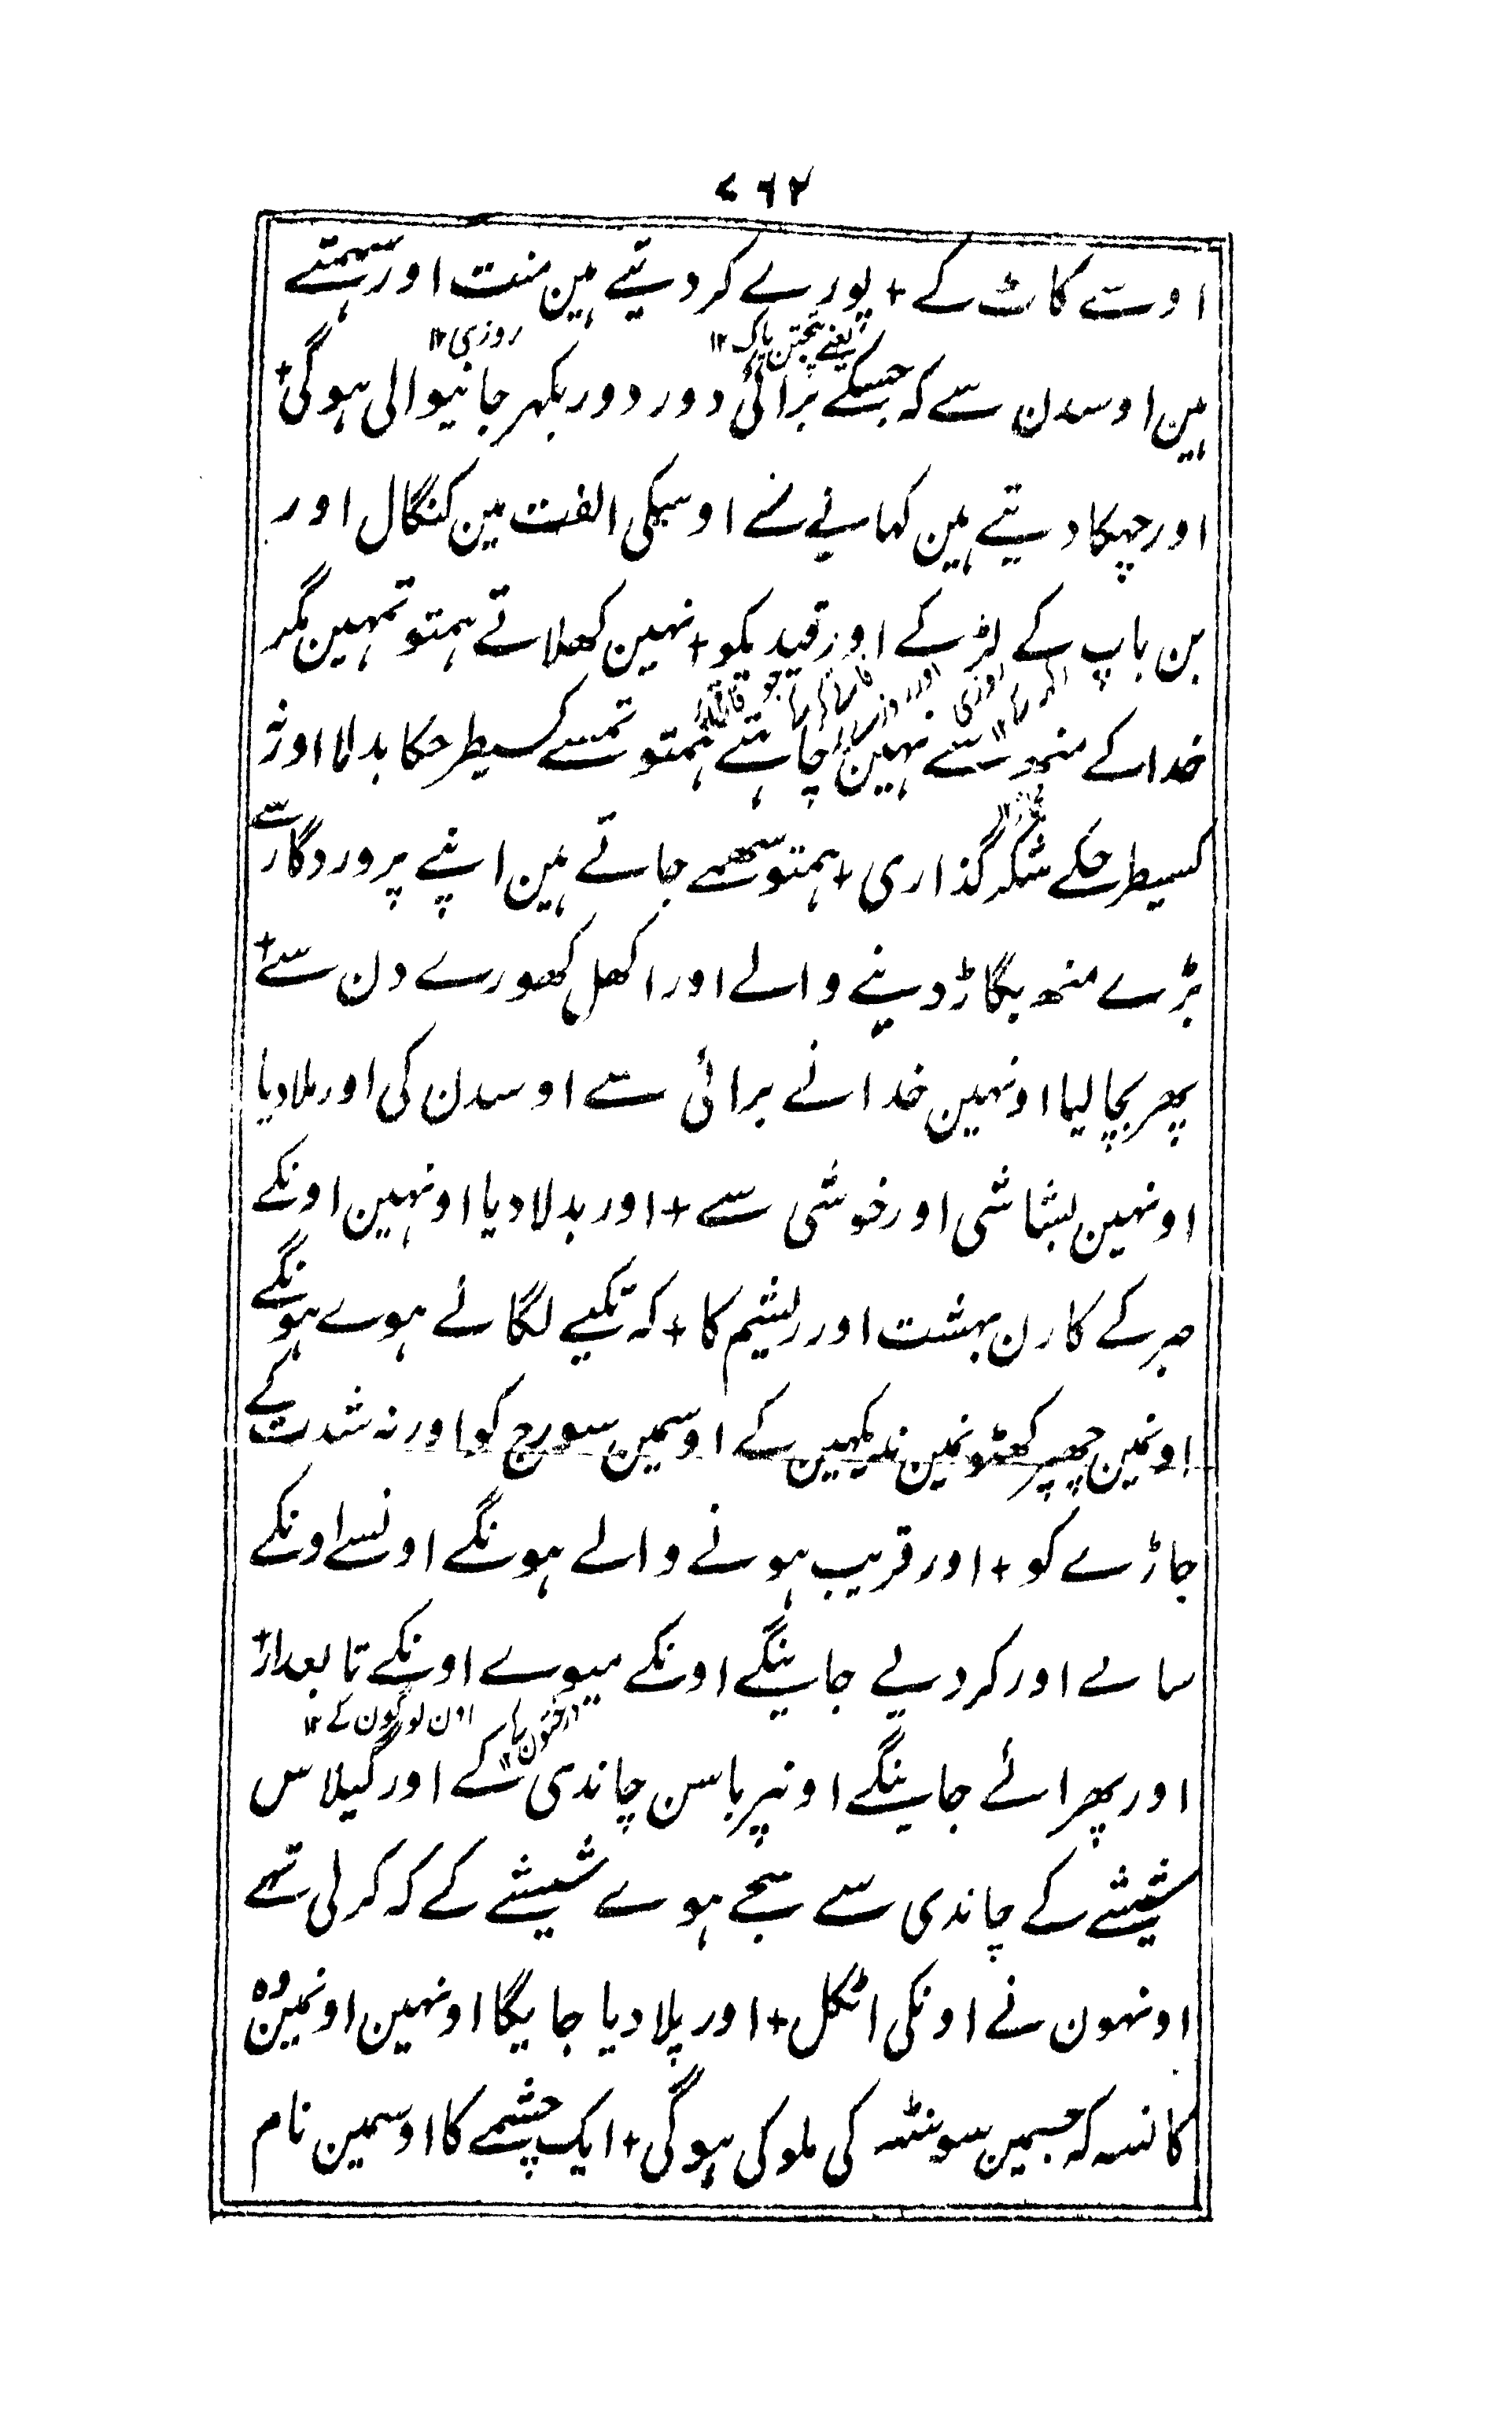 ۷۶۲
اوسے کاٹ کے + پورے کر دیتے ہین منت اور سہمتے
یعنے پنجتن پاک ۱۲ روزی ۱۲
ہین اوسدن سے کہ جسکے برائی دور دور بکہر جانیوالی ہوگی +
اور چہکا دیتے ہین کہانے سے اوسکی الفت مین کنگال اور
بن باپ کے لڑکے اور قیدیکو + نہین کھلاتے ہمتو تمہین مگر
خدا کے منھ سے نہین چاہتے ہمتو تمسے کسیطرحکا بدلا اور نہ
کسیطرحکے شکر گذاری + ہمتو سہمے جاتے ہین اپنے پروردگار سے
بڑے منھ بگاڑ دینے والے اور اکھل کھورے دن سے +
پھر بچا لیا اونہین خدا نے برائی سے اوسدن کی اور ملا دیا
اونہین بشاشی اور خوشی سے + اور بدلا دیا اونہین اونکے
صبر کے کارن بہشت اور ریشم کا + کہ تکیے لگائے ہوے ہونگے
اونمین چھپر کھٹونمین ندیکہین کے اوسمین سورج کو اور نہ شدت کے
جاڑے کو + اور قریب ہونے والے ہونگے اونسے اونکے
سائے اور کر دیے جاینگے اونکے میوے اونکے تابعدار +
درختون ۱۲ اون لوگون کے ۱۲
اور پھرائے جاینگے اونپر باسن چاندی کے اور گیلاس
شیشے کے چاندی سے سجے ہوے شیشے کے کہ کر لی تہے
اونہون نے اونکی اٹکل + اور پلا دیا جایگا اونہین اونمین وہ
کانسہ کہ جسمین سونٹہ کی ملوکی ہوگی + ایک چشمے کا اوسمین نام